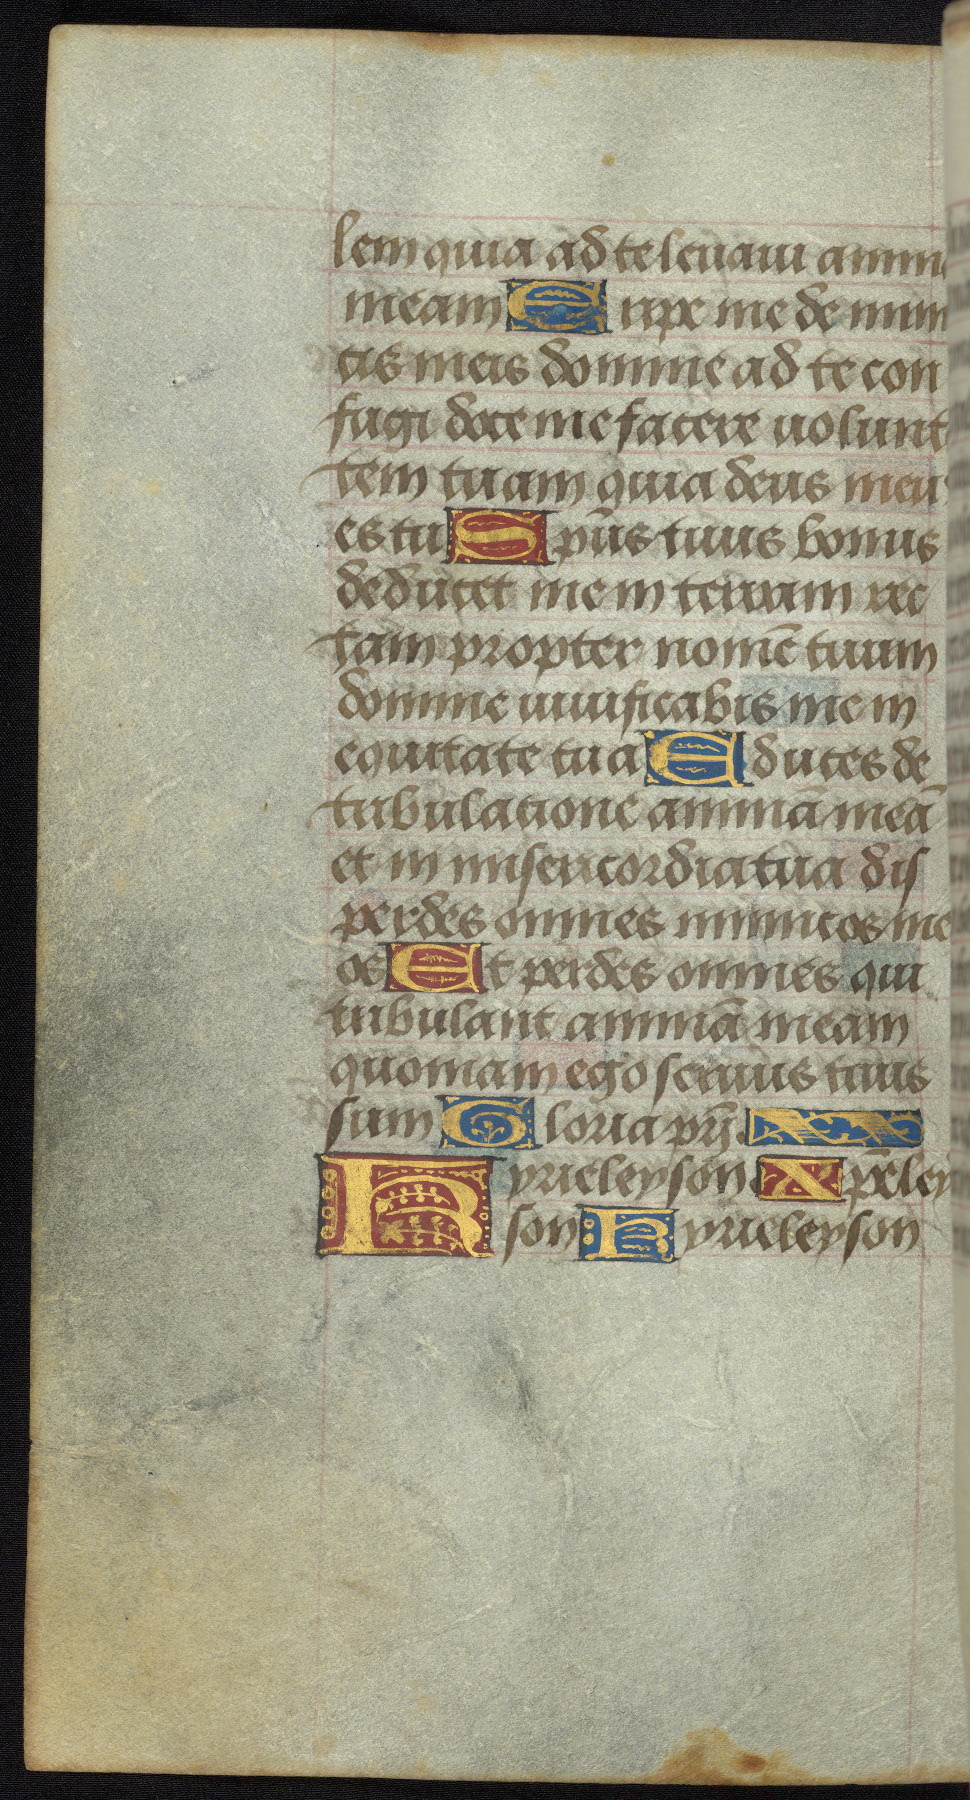 lem quia ad te leuaui anima
meam Eripe me de inimi
cis meis domine ad te con
fugi doce me facere uolunt
tem tuam quia deus meus
es tu Spūs tuus bonus
deducet me in terram rec
tam propter nomē tuum
domine uiuificabis me in
equitate tua Educes de
tribulatione animā meā
et in misericordia tua dis
perdes omnes inimicos me
os Et perdes omnes qui
tribulant animā meam
quoniam ego seruus tuus
sum Gloria pr̄j.
Kyrieleyson Xp̄eley
son Kyrieleyson